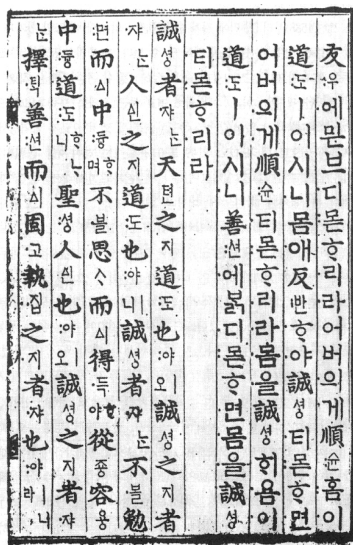 友:우에믿브디몯ᄒᆞ리라어버의게順슌홈이
道:도ㅣ이시니몸애反:반ᄒᆞ야誠셩티몯ᄒᆞ면
어버의게順슌티몯ᄒᆞ리라몸을誠셩히욤이
道:도ㅣ이시니善:션에ᄇᆞᆰ디몯ᄒᆞ면몸을誠셩
티몯ᄒᆞ리라
誠셩者쟈ᄂᆞᆫ天텬之지道:도也야ㅣ오誠셩之지者
쟈ᄂᆞᆫ人ᅀᅵᆫ之지道:도也야ㅣ니誠셩者쟈ᄂᆞᆫ不블勉
:면而ᅀᅵ中:듕ᄒᆞ며不블思ᄉᆞ而ᅀᅵ得득ᄒᆞ야從죵容용
中:듕道:도ᄒᆞᄂᆞ니聖:셩人ᅀᅵᆫ也:야ㅣ오誠셩之지者쟈
ᄂᆞᆫ擇ᄐᆡᆨ善:션而ᅀᅵ固고執집之지者쟈也:야ㅣ니라